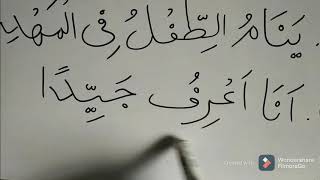 . يَنَامُ الطِّفْلُ فِى الْمَهْدِ
. اَنَا اَعْرِفُ جَيِّدًا
Created with
Wondershare
FilmoraGo